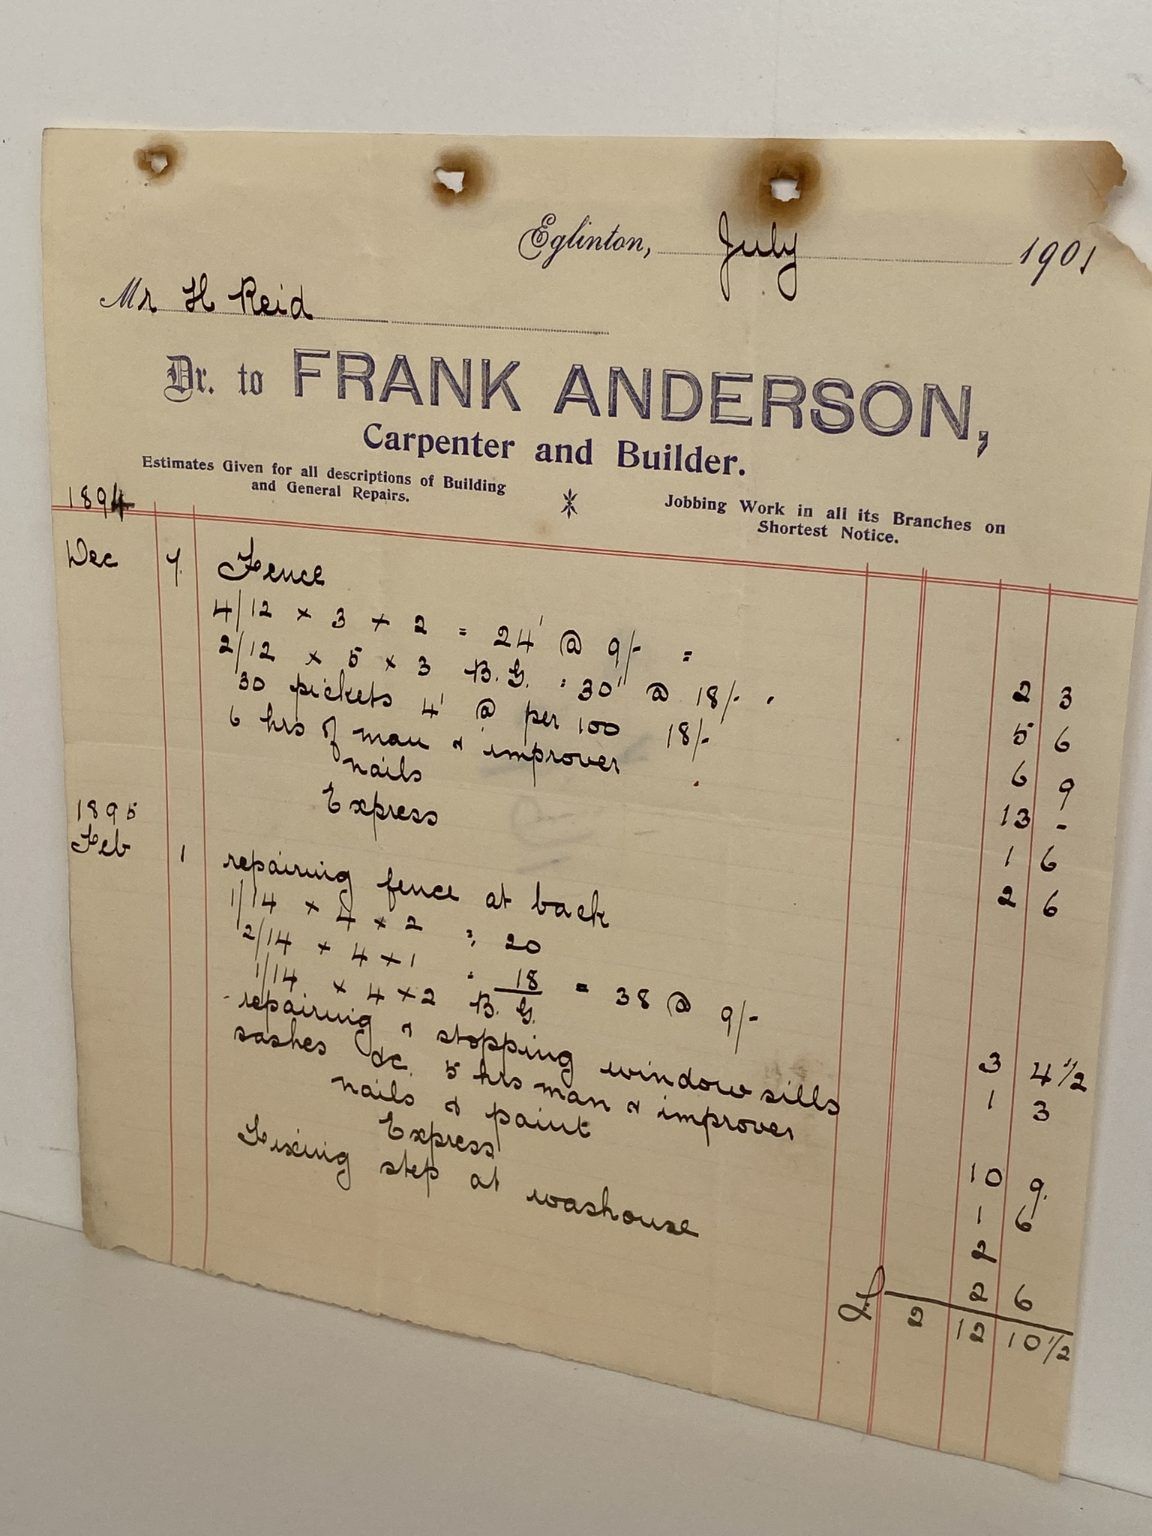 Eglinton, July 1901
Mr H Reid
Dr. to FRANK ANDERSON,
Carpenter and Builder.
Estimates Given for all descriptions of Building
and General Repairs.
Jobbing Work in all its Branches on
Shortest Notice.
1894
Dec 7. Fence
4/12 x 3 x 2 = 24' @ 9/- = 2 3
2/12 x 5 x 3 B.G. = 30' @ 18/- 5 6
30 pickets 4' @ per 100 18/- 6 9
6 hrs of man & improver 13 -
nails 1 6
Express 2 6
1895
Feb 1 repairing fence at back
1/14 x 4 x 2 = 20
12/14 x 4 x 1 = 18 = 38 @ 9/- 3 4 1/2
1/14 x 4 x 2 B.G. 1 3
repairing & stopping window sills
sashes &c. 5 hrs man & improver 10 9.
nails & paint 1 6
Express 2
Fixing step at washouse 2 6
£ 2 12 10 1/2